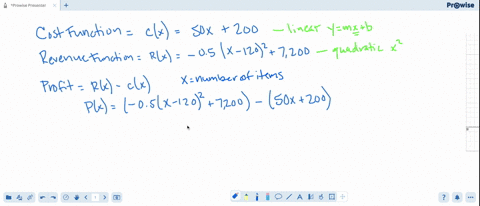 Prowise
Cost Function = c(x) = 50x + 200 — linear y=mx+b
Revenue Function = R(x) = -0.5 (x-120)² + 7,200 — quadratic x²
Profit = R(x) - c(x) x=number of items
P(x) = (-0.5(x-120)² + 7,200) - (50x+200)